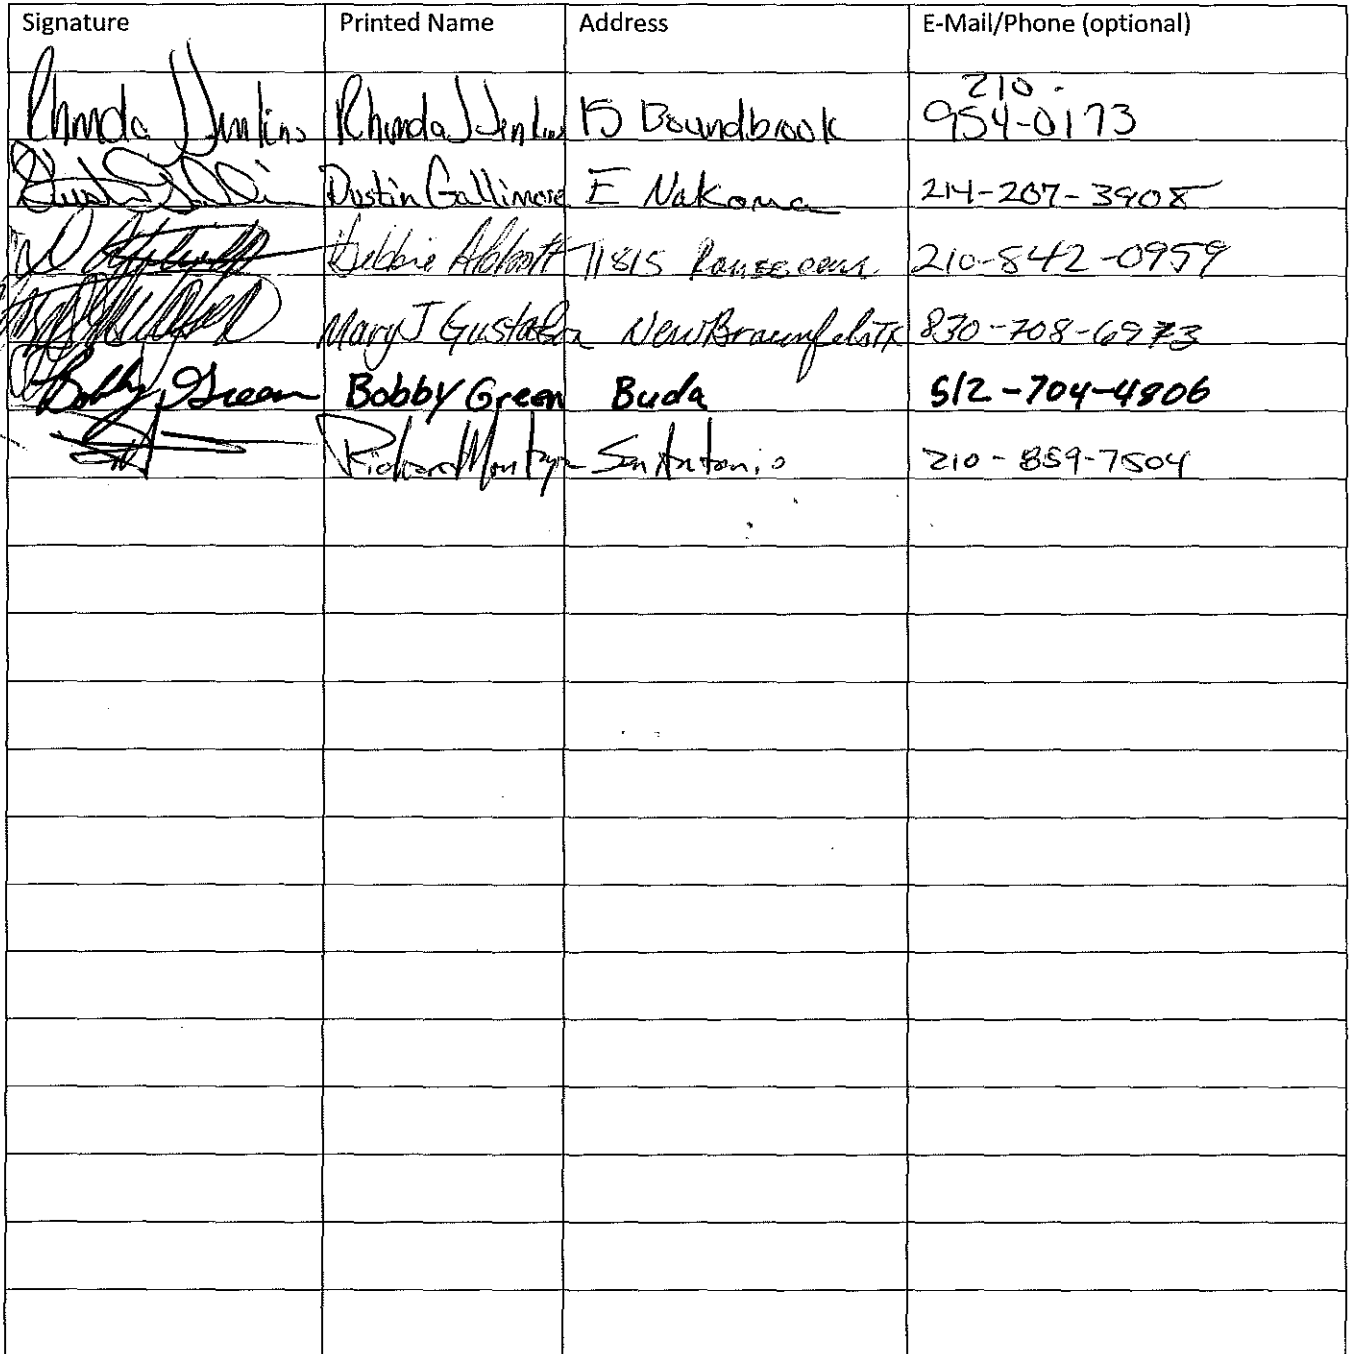 Signature Printed Name Address E-Mail/Phone (optional)
210-
Rhonda J Jenkins Rhonda J Jenkins 15 Boundbrook 954-0173
Dustin Gallimore E Nakoma 214-207-3908
Debbie Abbott 11815 210-842-0959
Mary J Gustafson New Braunfels TX 830-708-6973
Bobby Green Bobby Green Buda 512-704-4806
Richard Montoya San Antonio 210-859-7504